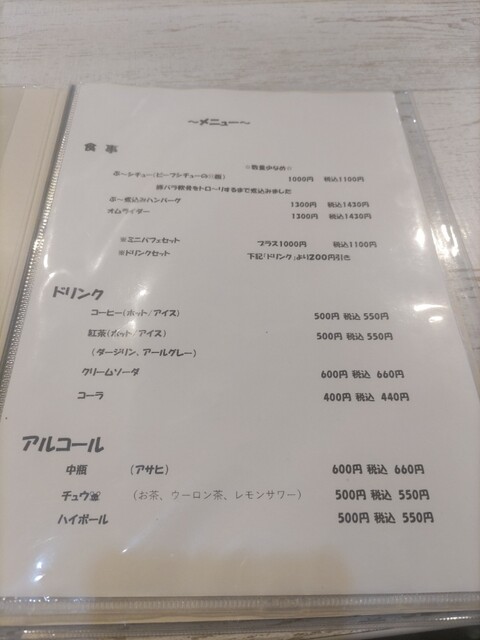 ~メニュー~
食事
※数量少なめ※
ぶ~シチュー(ビーフシチューの豚版) 1000円 税込1100円
豚バラ軟骨をトローリするまで煮込みました
ぶ~煮込みハンバーグ 1300円 税込1430円
オムライダー 1300円 税込1430円
※ミニパフェセット プラス1000円 税込1100円
※ドリンクセット 下記「ドリンク」より200円引き
ドリンク
コーヒー(ホット/アイス) 500円 税込 550円
紅茶(ホット/アイス) 500円 税込 550円
(ダージリン、アールグレー)
クリームソーダ 600円 税込 660円
コーラ 400円 税込 440円
アルコール
中瓶 (アサヒ) 600円 税込 660円
チュウ (お茶、ウーロン茶、レモンサワー) 500円 税込 550円
ハイボール 500円 税込 550円